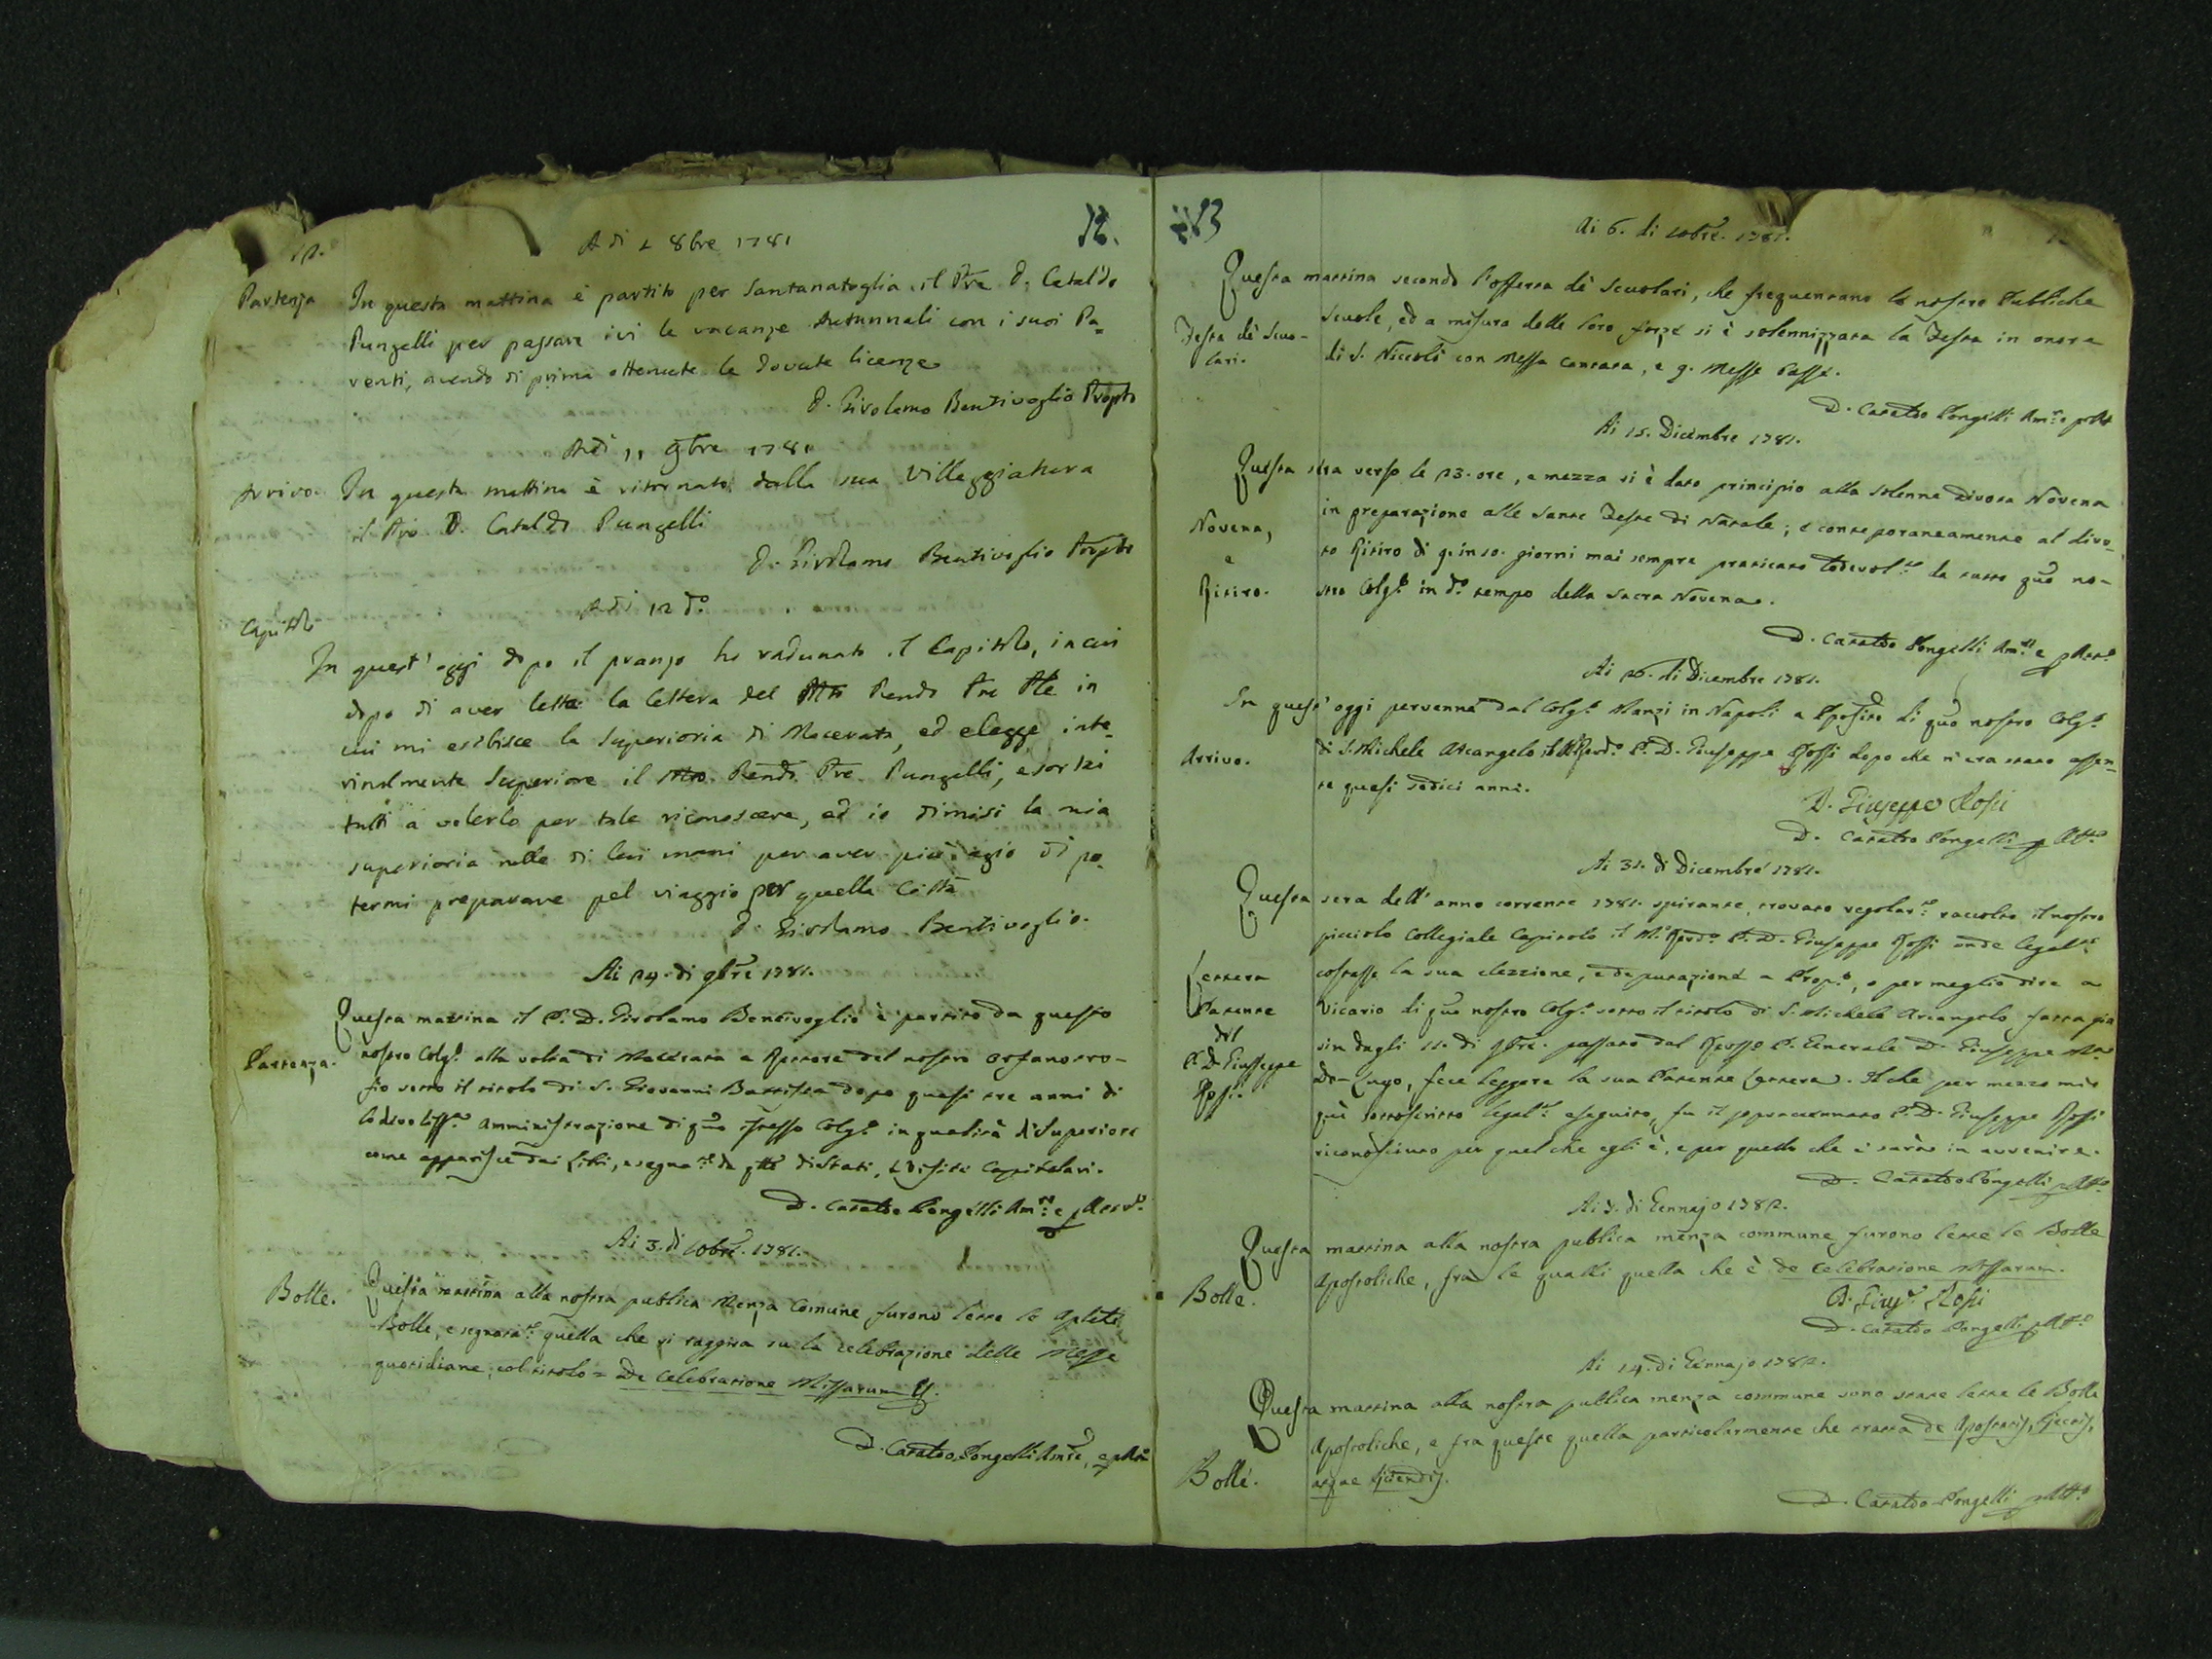 12.
A di 1 8bre 1781
Partenza In questa mattina è partito per Santanatoglia il Pre D. Cataldo
Pungelli per passare ivi le vacanze Autunnali con i suoi Pa=
renti, avendo di prima ottenute le dovute licenze
D. Girolamo Bentivoglio Propto
A di 11 9bre 1781
Arrivo. In questa mattina è ritornato dalla sua Villeggiatura
il Pre D. Cataldo Pungelli
D. Girolamo Bentivoglio Propto
A di 12 do
Capitolo
In quest'oggi dopo il pranzo ho radunato il Capitolo, in cui
dopo di aver letta la lettera del Rendo Pre Ple in
cui mi esibisce la Superioria di Macerata, ed elegge inte=
rinalmente Superiore il Rendo Pre Pungelli, esortai
tutti a volerlo per tale riconoscere, ed io dimisi la mia
superioria nelle di lui mani per aver più agio di po=
termi preparare pel viaggio per quella Città
D. Girolamo Bentivoglio.
Ai 24. di 9bre 1781.
Questa mattina il P. D. Girolamo Bentivoglio è partito da questo
Partenza. nostro Colgo alla volta di Macerata a Rettore del nostro Orfanotro-
fio sotto il titolo di S. Giovanni Battista dopo quasi tre anni di
lodevolissa Amministrazione di quo istesso Colgo in qualità di Superiore
come apparisce dai Libri, e segnate da Stati, Capitolari.
D. Cataldo Pongelli Amre e
Ai 3. di 10bre. 1781.
Bolle. Questa mattina alla nostra publica Menza Comune furono lette le Aplche
Bolle, e segnatate quella che si raggira su la celebrazione delle Messe
quotidiane, col titolo = De Celebratione Missarum
D. Cataldo Pongelli Amre, e
13
Ai 6. di 10bre. 1781.
Questa mattina secondo l'offerta de' Scuolari, che frequentano le nostre Publiche
Festa de' Scuo- Scuole, ed a misura delle loro forze si è solennizzata la Festa in onore
lari. di S. Niccolò con Messa Cantata, e 9. Messe basse.
D. Cataldo Pongelli Amre e
Ai 15. Dicembre 1781.
Questa sera verso le 23. ore, e mezza si è dato principio alla solenne divota Novena
Novena, in preparazione alle Sante Feste di Natale; e contemporaneamente al divo-
e to Ritiro di giorni mai sempre praticato lodevolte da tutto quo no-
Ritiro. stro Colgo in do tempo della Sacra Novena.
D. Cataldo Pongelli Amre e
Ai 26. di Dicembre 1781.
In quest'oggi pervenne dal Colgo Manzi in Napoli a Proposito di quo nostro Colgo
Arrivo. di S. Michele Arcangelo il M. Rendo P. D. Giuseppe Rossi dopo che n'era stato assen-
te quasi sedici anni.
D. Giuseppe Rossi
D. Cataldo Pongelli Atto
Ai 31. di Dicembre 1781.
Questa sera dell'anno corrente 1781. spirante, trovato regolarte raccolto il nostro
picciolo Collegiale Capitolo il M. Rendo P. D. Giuseppe Rossi onde legalte
Lettera costasse la sua elezzione, e deputazione a Propo, o per meglio dire a
Patente Vicario di quo nostro Colgo sotto il titolo di S. Michele Arcangelo fatta già
del sin dagli 11. di 9bre. passato dal P. Generale D. Giuseppe Ma
P. D. Giuseppe De-Lugo, fece leggere la sua Patente Lettera. Il che per mezzo mio
Rossi. quì sottoscritto legalte eseguito, fu il sopraccennato P. D. Giuseppe Rossi
riconosciuto per quel che egli è, e per quello che e sarà in avvenire.
D. Cataldo Pongelli Atto
Ai 3. di Gennajo 1782.
Questa mattina alla nostra publica menza commune furono lette le Bolle
Bolle. Apostoliche, frà le qualli quella che è de Celebratione Missarum.
D. Giuse Rossi
D. Cataldo Pongelli Atto
Ai 14. di Gennajo 1782.
Questa mattina alla nostra publica menza commune sono state lette le Bolle
Apostoliche, e fra queste quella particolarmente che tratta de Apostatis, Ejectis,
Bolle. atque Ejiciendis.
D. Cataldo Pongelli Atto